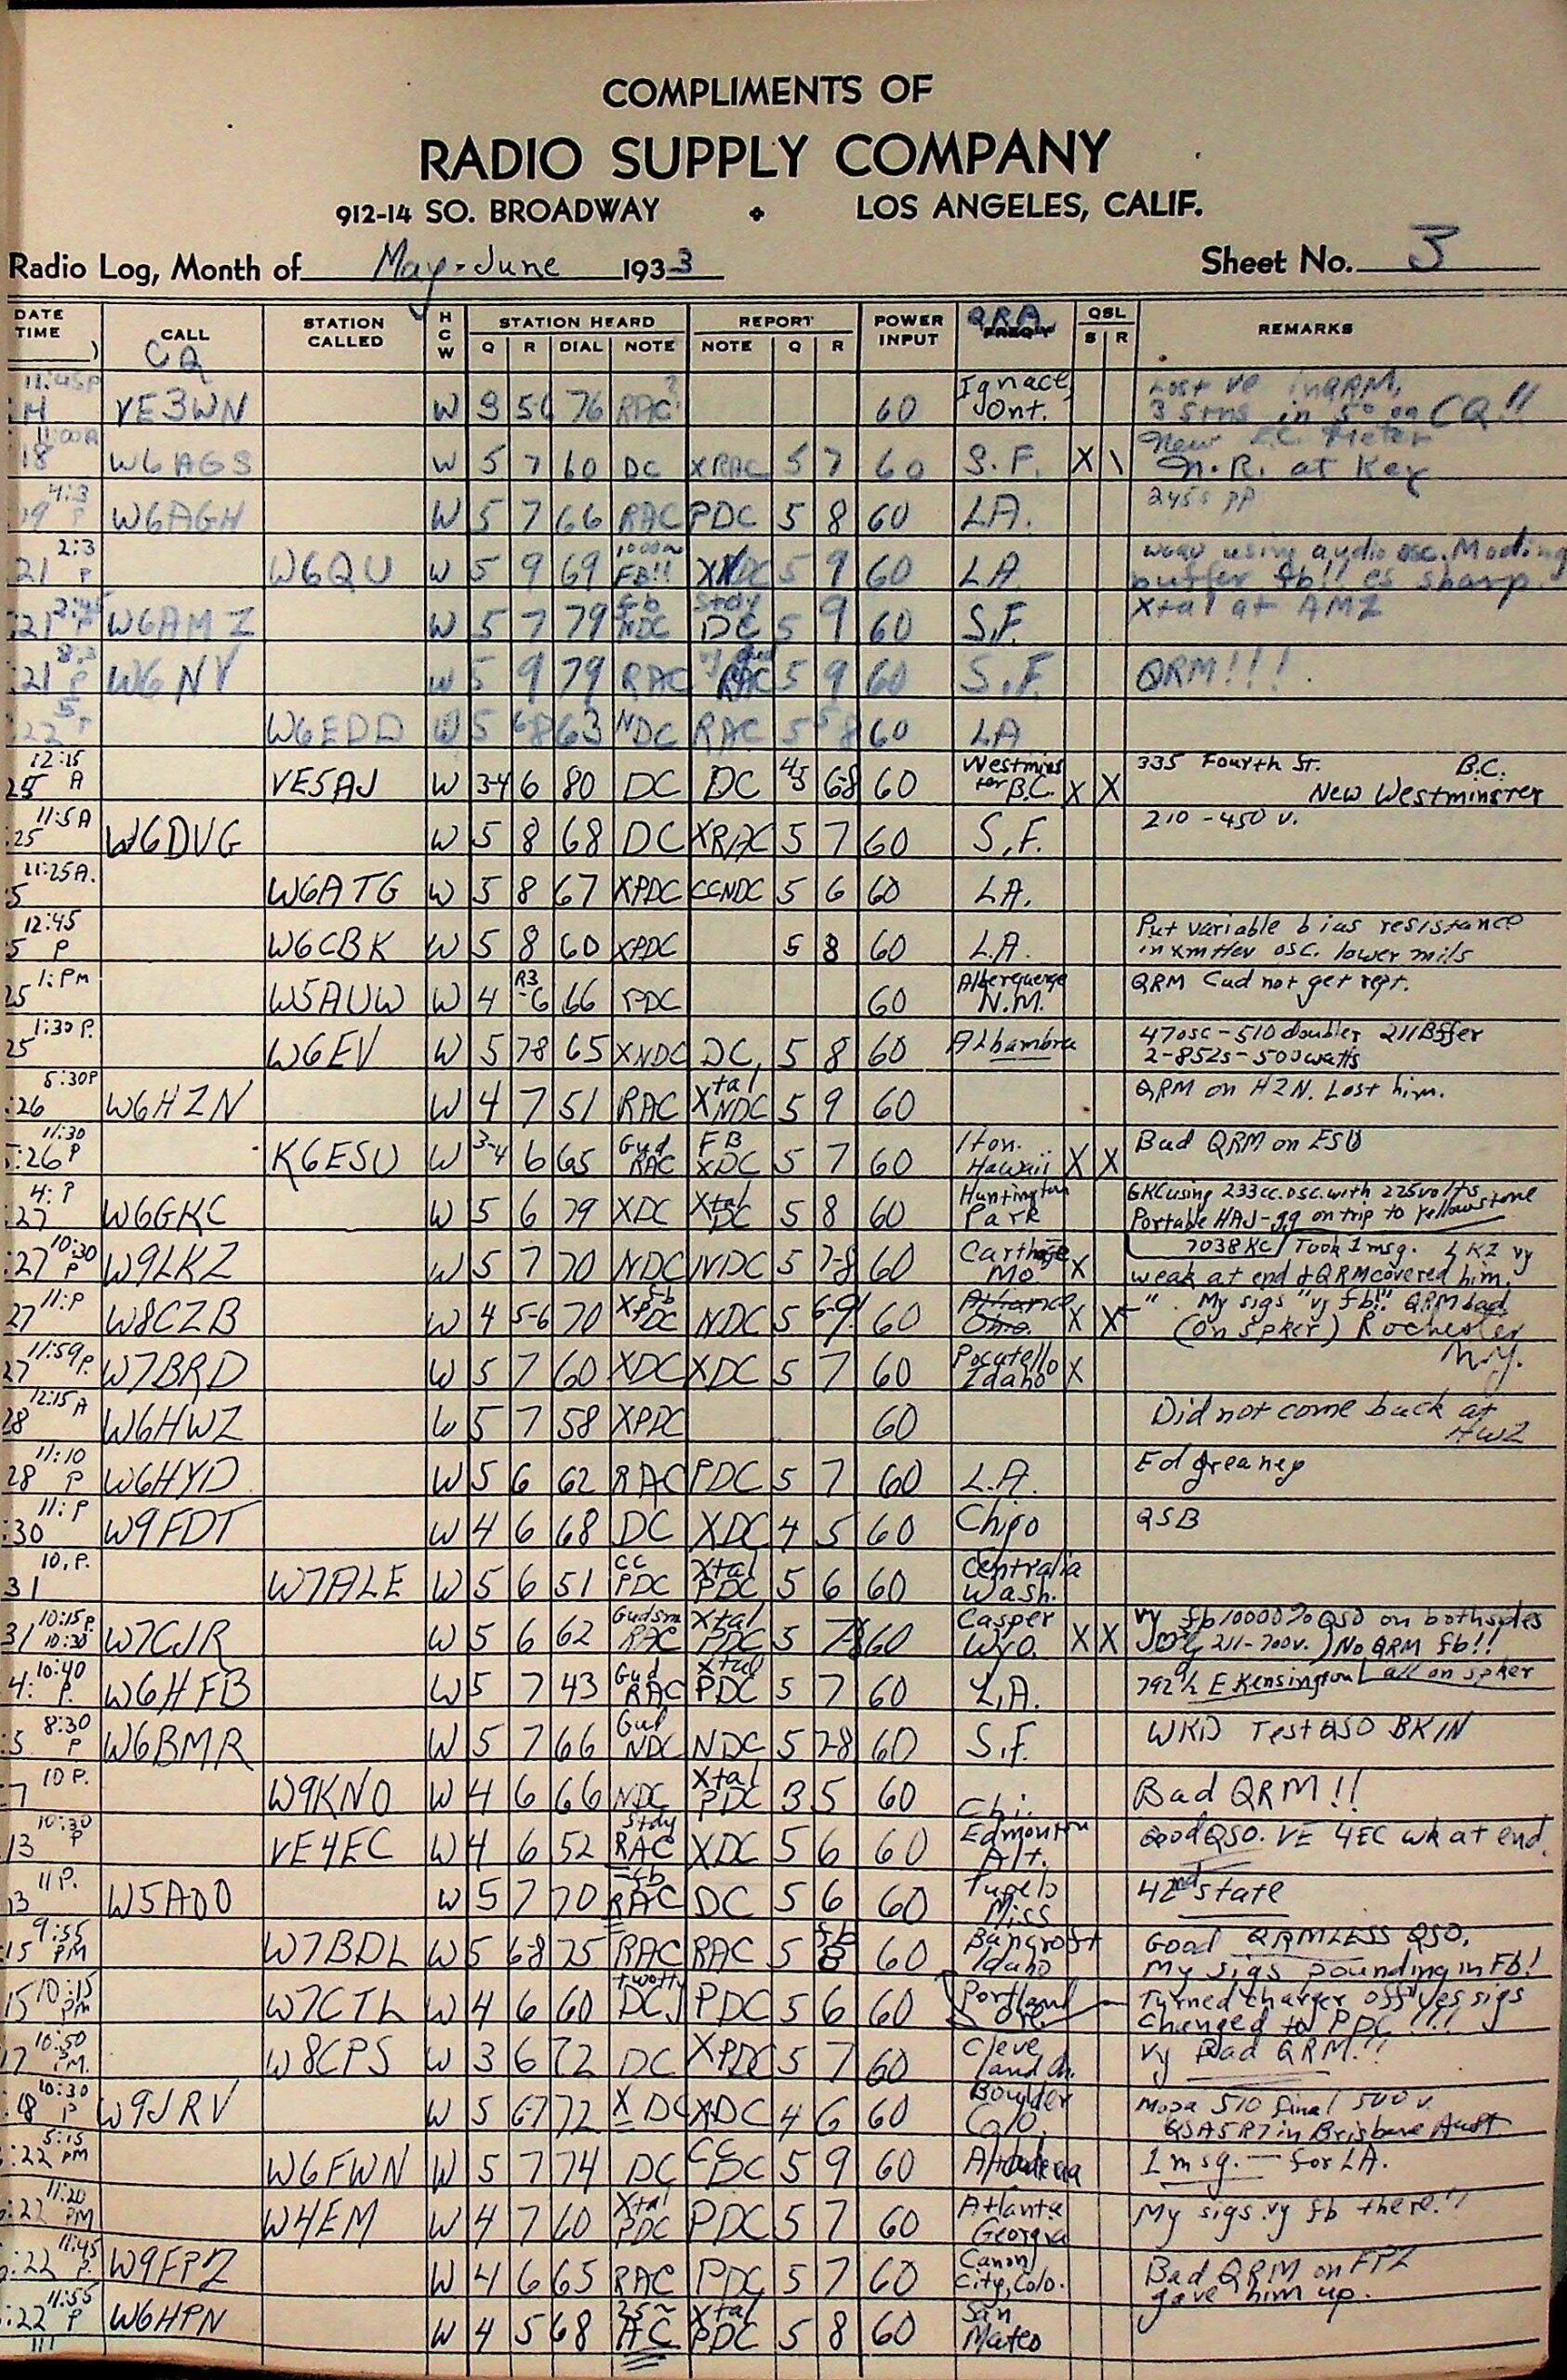 COMPLIMENTS OF
RADIO SUPPLY COMPANY
912-14 SO. BROADWAY + LOS ANGELES, CALIF.
Radio Log, Month of May-June 1933 Sheet No. 3
DATE TIME CALL CQ STATION CALLED H C W STATION HEARD Q R DIAL NOTE REPORT NOTE Q R POWER INPUT QRA FREQ'Y QSL S R REMARKS
11:45P VE3WN W 3 5-6 76 RAC? 60 Ignace, Ont. Lost ve in QRM, 3 Stns in 5° on CQ!!
18 11:00A W6AGS W 5 7 60 DC XRAC 5 7 60 S.F. X \ New Meter N.R. at Key
19 4:3 P W6AGH W 5 7 66 RAC PDC 5 8 60 LA. 245s PP
21 2:3 P W6QU W 5 9 69 1000~ FB!! DC 5 9 60 LA using audio osc. Moding buffer fb!! es sharp.
21 2:45 W6AMZ W 5 7 79 fb NDC Stdy DC 5 9 60 S.F. Xtal at AMZ
21 8:3 P W6NV W 5 9 79 RAC RAC 5 9 60 S.F. QRM!!!
22 5 P W6EDD W 5 6-8 63 NDC RAC 5 5-8 60 LA
25 12:15 A VE5AJ W 3-4 6 80 DC DC 45 6-8 60 Westminster B.C. X X 335 Fourth St. B.C. New Westminster
25 11:5A W6DVG W 5 8 68 DC XRAC 5 7 60 S.F. 210-450 v.
5 11:25A. W6ATG W 5 8 67 XPDC CCNDC 5 6 60 LA.
5 12:45 P W6CBK W 5 8 60 XPDC 5 8 60 L.A. Put variable bias resistance in xmtter osc. lower mils
25 1:PM W5AUW W 4 R3-6 66 PDC 60 Alberquerque N.M. QRM Cud not get rept.
25 1:30P. W6EV W 5 7-8 65 XNDC DC, 5 8 60 Alhambra 47osc-510 doubler 211Bffer 2-852s-500watts
:26 5:30P W6HZN W 4 7 51 RAC Xtal NDC 5 9 60 QRM on HZN. Lost him.
5:26 11:30 P K6ESU W 3-4 6 65 Gud RAC FB XDC 5 7 60 Hon. Hawaii X X Bad QRM on ESU
:27 4:P W6GKC W 5 6 79 XDC Xtal DC 5 8 60 Huntington Park GKC using 233cc.osc.with 225volts Portable HAJ-gg on trip to Yellowstone
:27 10:30 P W9LKZ W 5 7 70 NDC NDC 5 7-8 60 Carthage Mo. X 7038 KC Took 1 msg. LKZ vy weak at end & QRM covered him.
27 11:P W8CZB W 4 5-6 70 fb XPDC NDC 5 6-9! 60 Alliance Ohio. X X " My sigs "vy fb!" QRM bad (on spker) Rochester N.Y.
27 11:59P. W7BRD W 5 7 60 XDC XDC 5 7 60 Pocatello Idaho X
28 12:15 A W6HWZ W 5 7 58 XPDC 60 Did not come back at HWZ
28 11:10 P W6HYD W 5 6 62 RAC PDC 5 7 60 L.A. Ed greaney
:30 11:P W9FDT W 4 6 68 DC XDC 4 5 60 Chigo QSB
31 10,P. W7ALE W 5 6 51 CC PDC Xtal PDC 5 6 60 Centralia Wash.
31 10:15P. 10:30 W7CJR W 5 6 62 Gudsm RAC Xtal PDC 5 7-8 60 Casper Wyo. X X vy fb 10000% QSO on both sides 211-700v.) No QRM fb!!
4: 10:40 P. W6HFB W 5 7 43 Gud RAC Xtal PDC 5 7 60 L.A. 792½ E Kensington all on spker
:5 8:30 P W6BMR W 5 7 66 Gud NDC NDC 5 7-8 60 S.F. WKD Test QSO BKIN
7 10 P. W9KNO W 4 6 66 NDC Xtal PDC 3 5 60 Chi. Bad QRM!!
13 10:30 P VE4EC W 4 6 52 Stdy RAC XDC 5 6 60 Edmonton Alt. Good QSO. VE 4EC wk at end.
13 11 P. W5AOO W 5 7 70 fb RAC DC 5 6 60 Tupelo Miss 42nd state
15 9:55 PM W7BDL W 5 6-8 75 RAC RAC 5 60 Bancroft Idaho Good QRMLESS QSO. My sigs pounding in Fb!
15 10:15 PM W7CTL W 4 6 60 DC PDC 5 6 60 Portland Ore. Turned charger off yes sigs changed to PDC!!!
17 10:50 PM. W8CPS W 3 6 72 DC XPDC 5 7 60 Cleveland Oh. Vy Bad QRM!!
:18 10:30 P W9JRV W 5 6-7 72 X DC XDC 4 6 60 Boulder Colo. Mopa 510 final 500 v. QSA5R7 in Brisbane Aust.
:22 5:15 PM W6FWN W 5 7 74 DC CC DC 5 9 60 Altadena 1 msg. — for LA.
:22 11:20 PM W4EM W 4 7 60 Xtal PDC PDC 5 7 60 Atlanta Georgia My sigs vy fb there!!
:22 11:45 P. W9FPZ W 4 6 65 RAC PDC 5 7 60 Canon City, Colo. Bad QRM on FPZ gave him up.
:22 11:55 P W6HPN W 4 5 68 25~ AC Xtal PDC 5 8 60 San Mateo